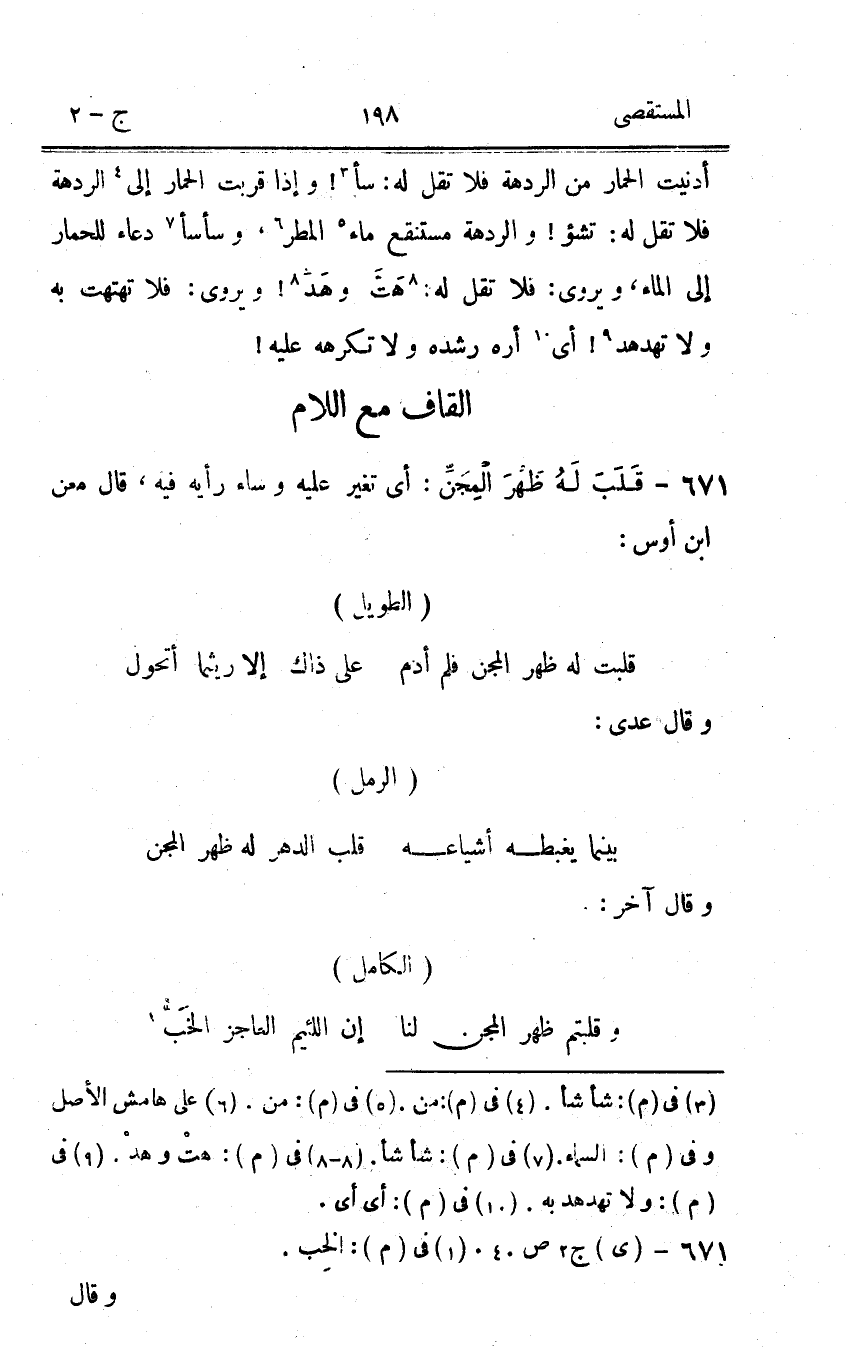 المستقصى ١٩٨ ج - ٢
أدنيت الحمار من الردهة فلا تقل له: سأ٣! و إذا قربت الحمار إلى٤ الردهة
فلا تقل له: تشؤ! و الردهة مستنقع ماء٥ المطر٦، و سأسأ٧ دعاء للحمار
إلى الماء، و يروى: فلا تقل له: ٨هَتَّ و هَدَّ٨! و يروى: فلا تهتهت به
و لا تهدهد٩! أى١٠ أره رشده و لا تكرهه عليه!
القاف مع اللام
٦٧١ - قَلَبَ لَهُ ظَهْرَ الْمِجَنِّ: أى تغير عليه و ساء رأيه فيه، قال معن
ابن أوس:
( الطويل )
قلبت له ظهر المجن فلم أدم على ذاك إلا ريثما أتحول
و قال عدى:
( الرمل )
بينما يغبطـه أشياعـه قلب الدهر له ظهر المجن
و قال آخر:
( الكامل )
و قلبتم ظهر المجن لنا إن اللئيم العاجز الخَبُّ١
(٣) فى (م): شأ شأ . (٤) فى (م): من . (٥) فى (م): من . (٦) على هامش الأصل
و فى ( م ) : السماء. (٧) فى ( م ) : شأ شأ. (٨-٨) فى ( م ) : هتْ و هدْ . (٩) فى
( م ) : و لا تهدهد به . (١٠) فى ( م ) : أى أى .
٦٧١ - ( ى ) ج ٢ ص ٤٠ . (١) فى ( م ) : الخِب .
و قال